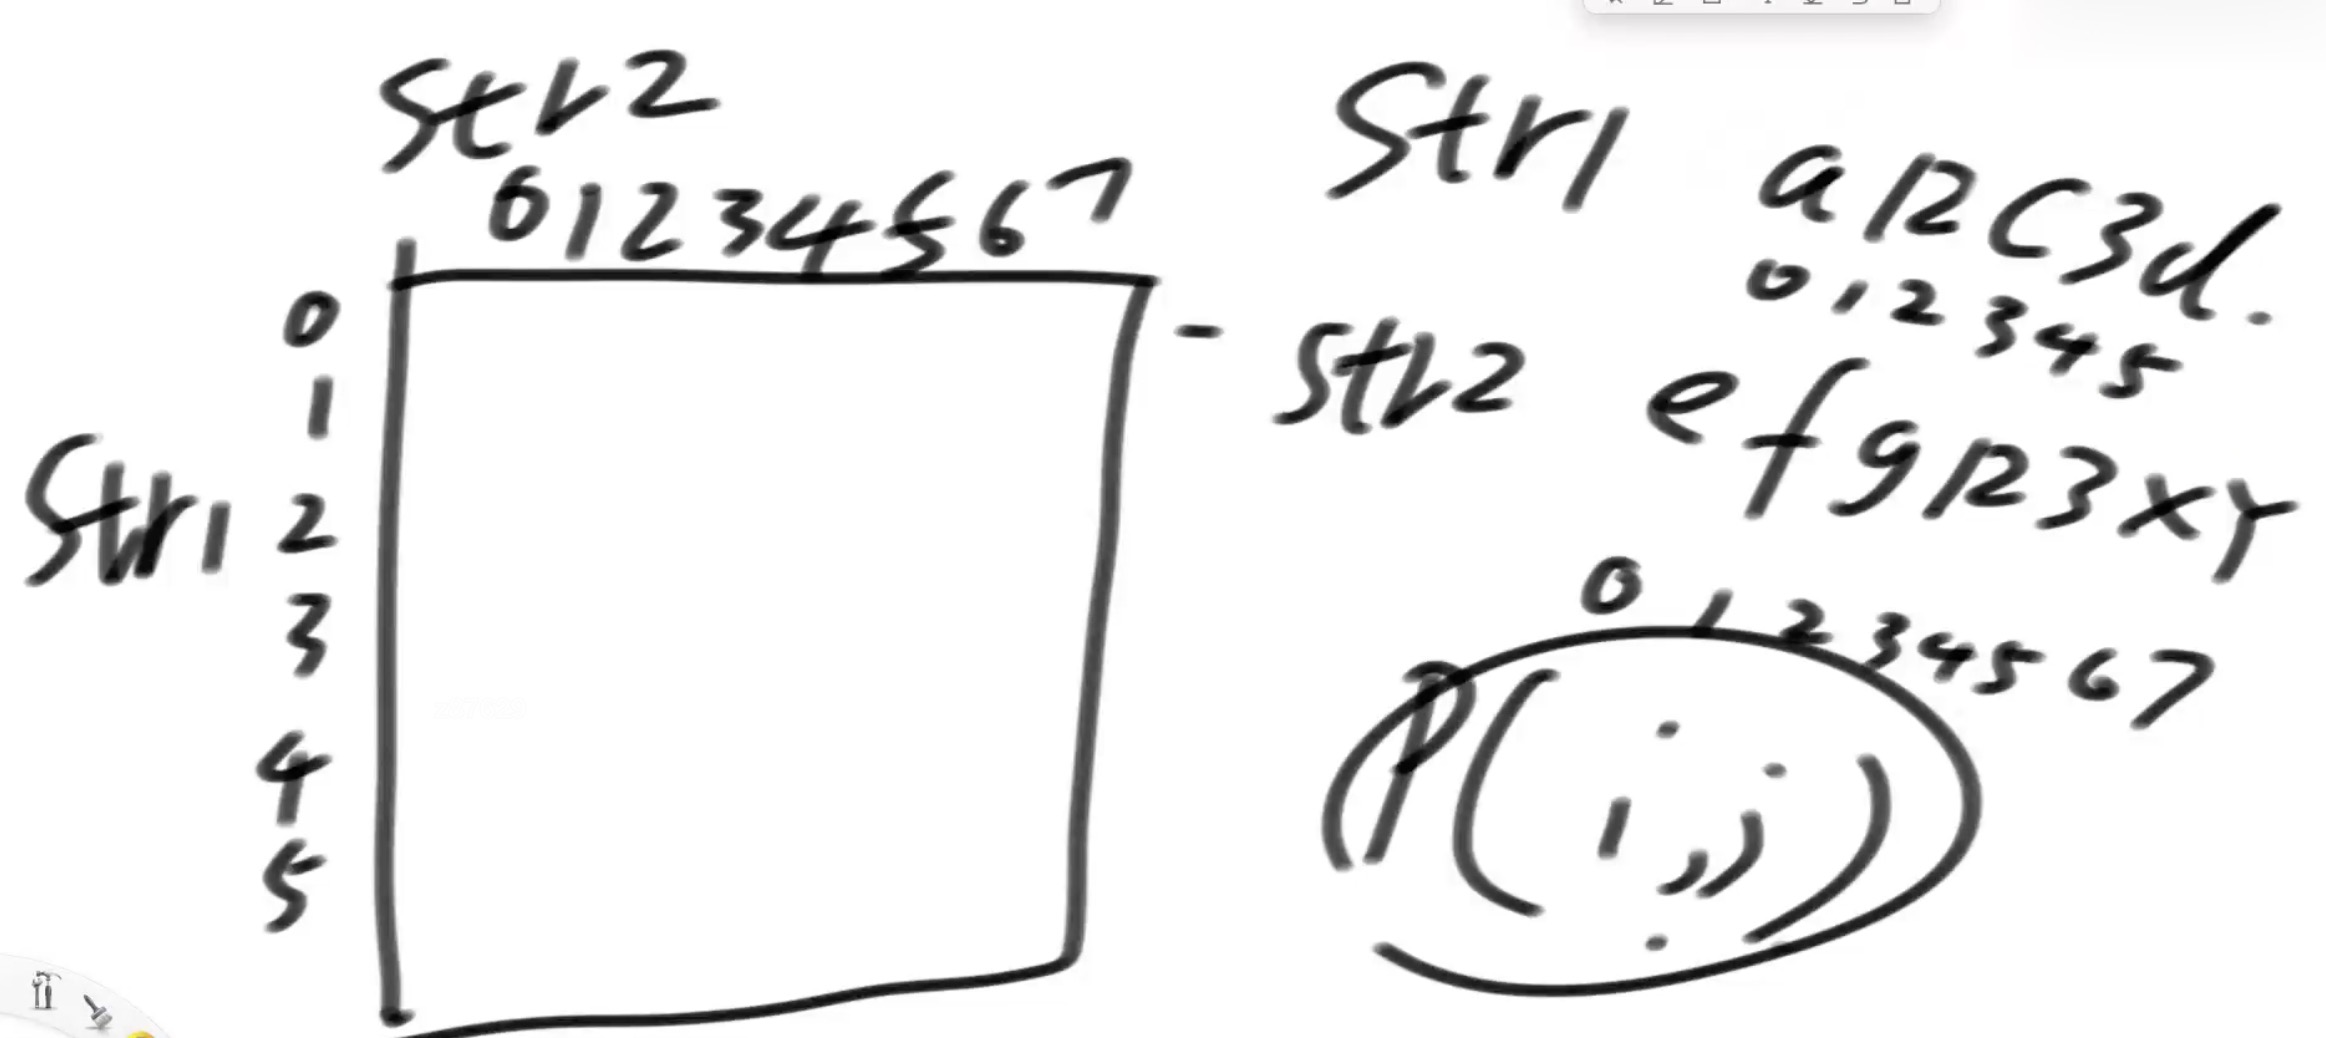 Str2
01234567
0
1
Str1 2
3
4
5
Str1 a12C3d.
012345
Str2 efg123xy
01234567
P(i,j)